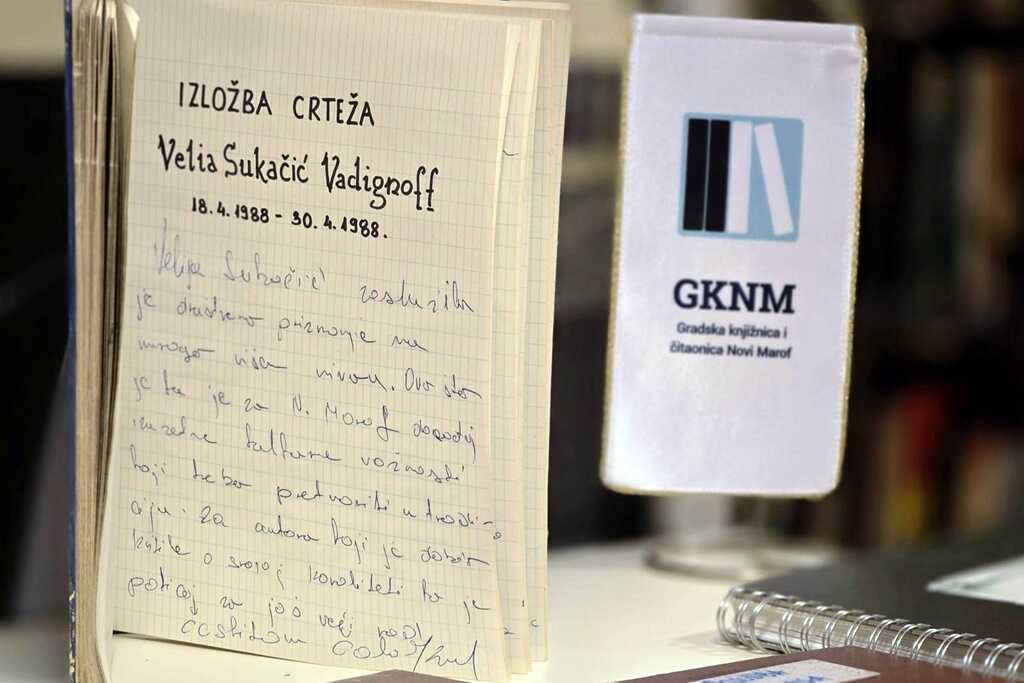 IZLOŽBA CRTEŽA
Velia Sukačić Vadignoff
18.4.1988 - 30.4.1988.
Velija Sukačić zaslužila
je društveno priznanje na
mnogo višem nivou. Ovo što
je tu je za N. Marof događaj
izuzetne kulturne važnosti
koji treba pretvoriti u tradi-
ciju. Za autora koji je dobio
kritike o svojoj kvaliteti to je
poticaj za još veći rad
GKNM
Gradska knjižnica i
čitaonica Novi Marof